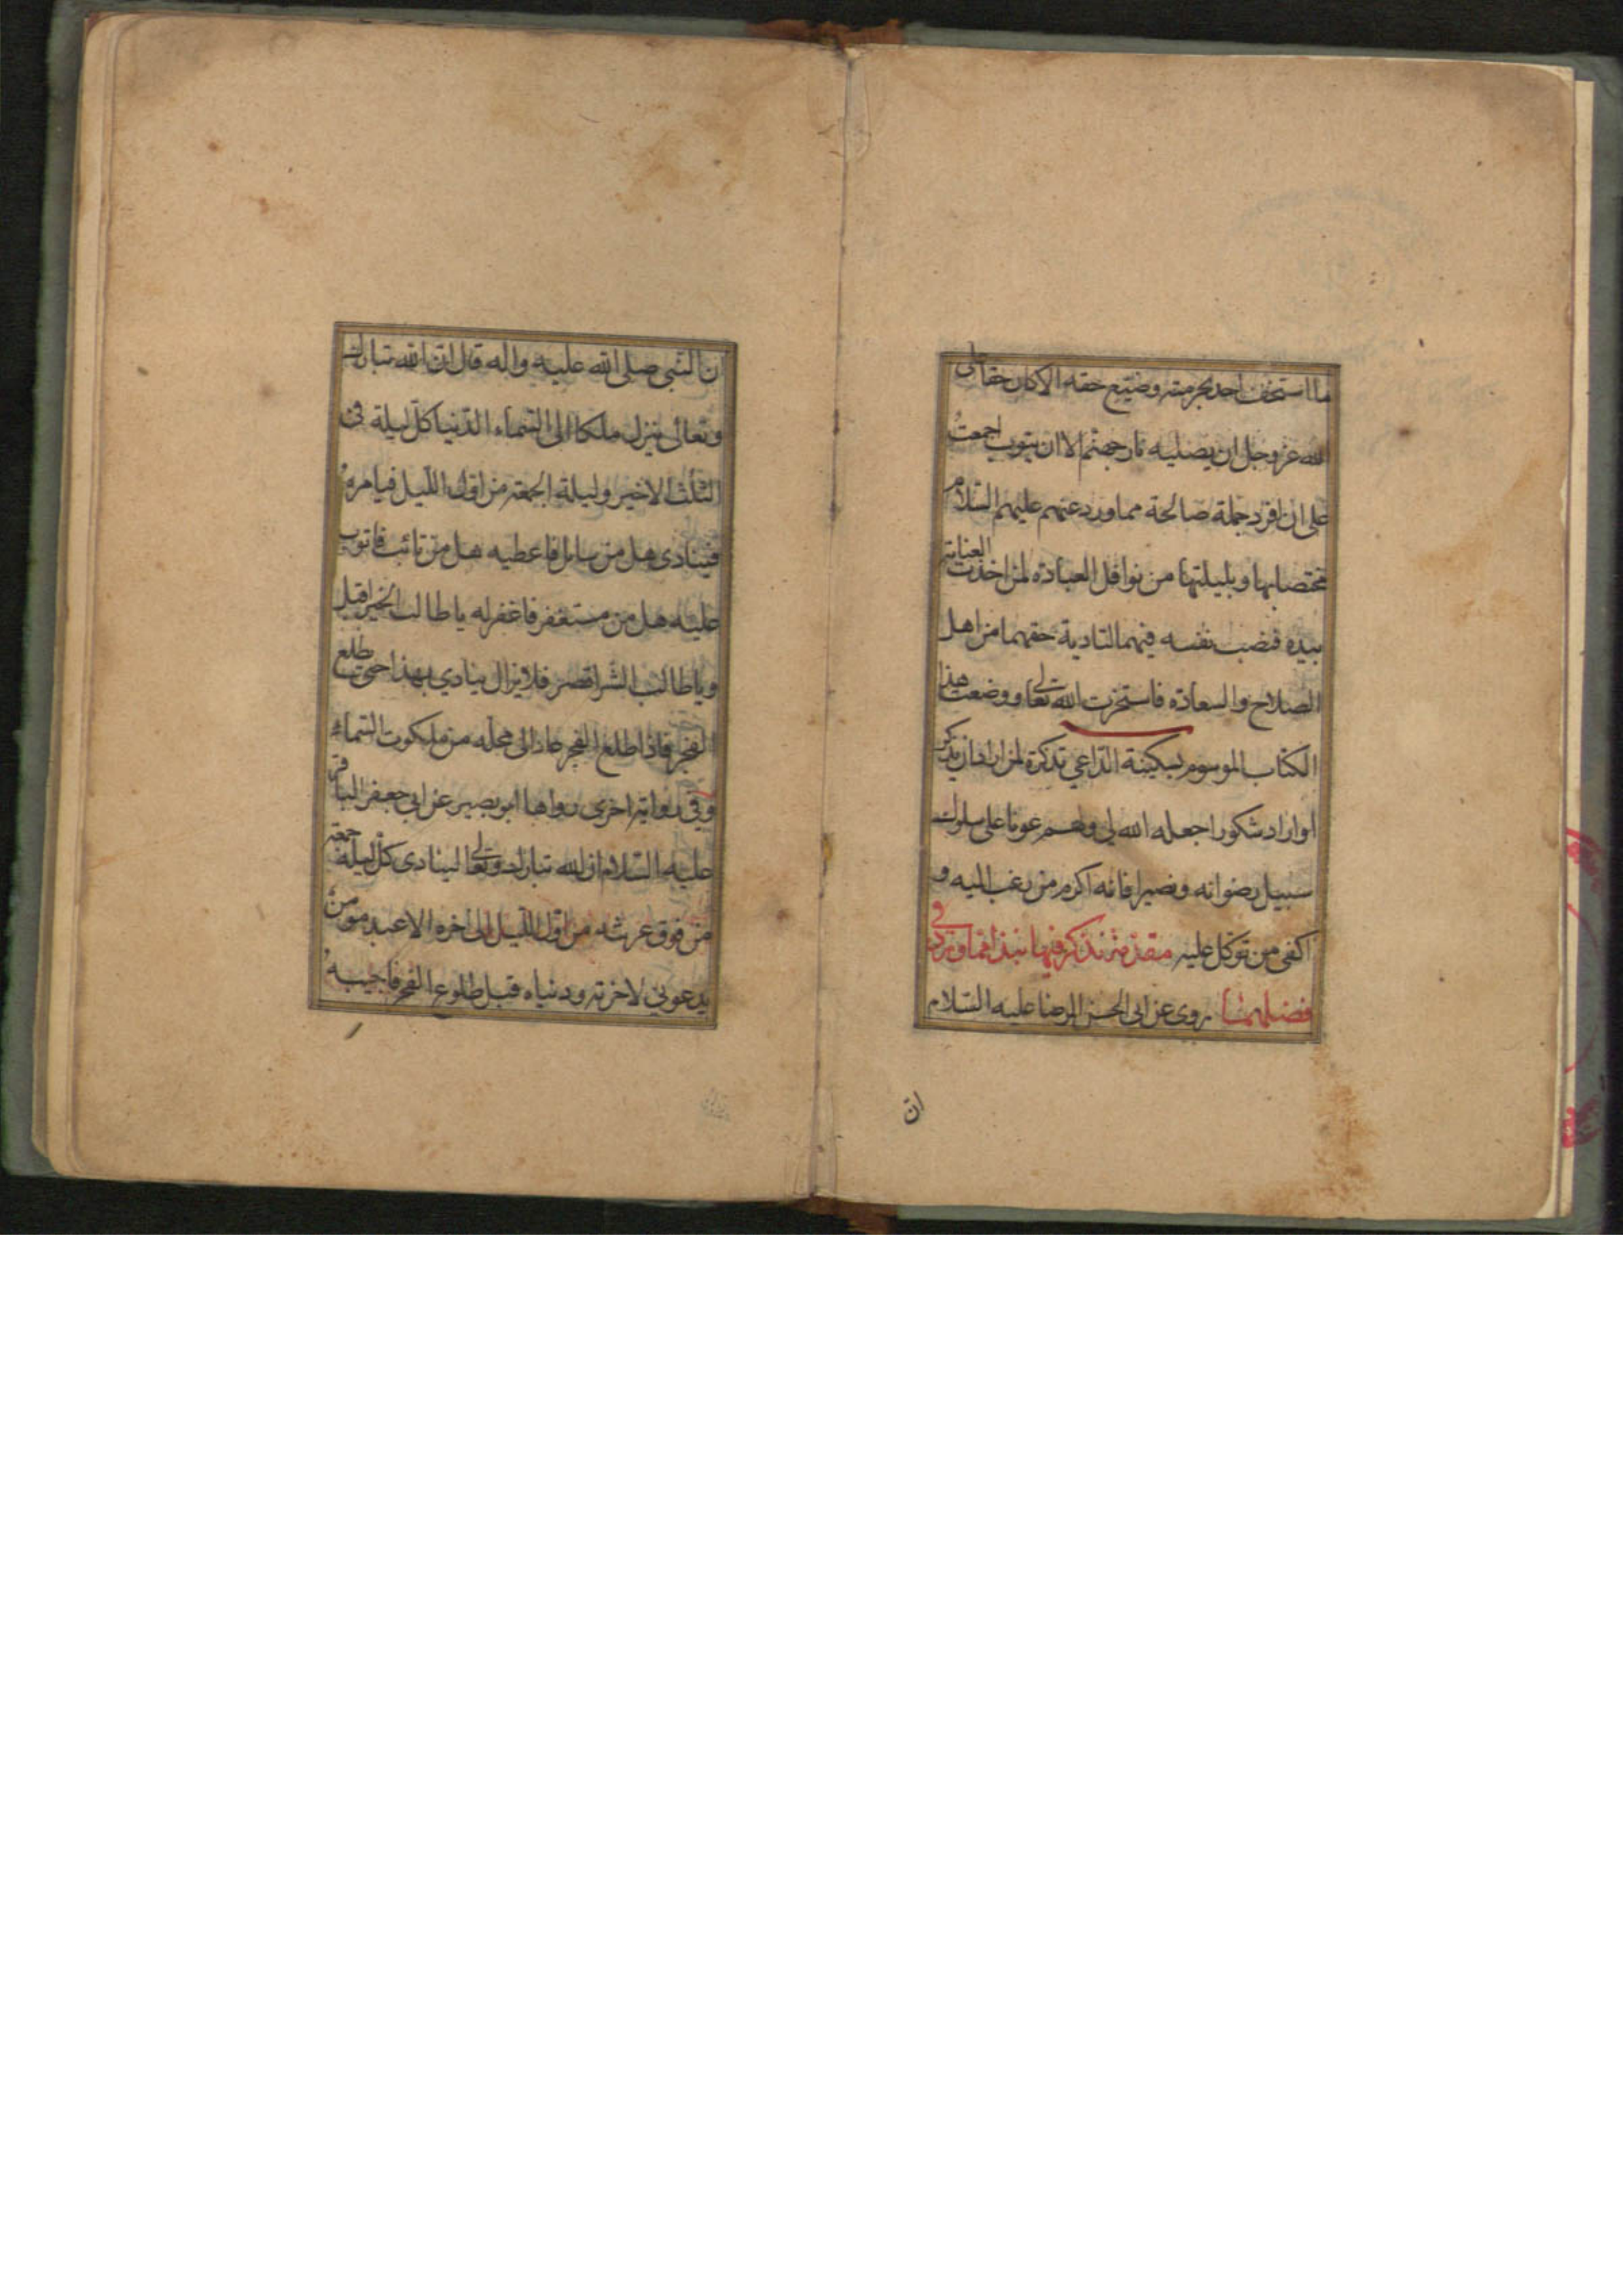 ما استخف احد بحرمته وضيّع حقه الا كان حقا على
الله عز وجل ان يصليه نار جهنم الا ان يتوب اجمعت
على ان افرد جملة صالحة مما ورد عنهم عليهم السّلام
مختصا بها وبليلتها من نوافل العبادة لمن اخذت العناية
بيده فنصب نفسه فيهما لتادية حقهما من اهل
الصلاح والسعادة فاستخرت الله تعالى ووضعت هذا
الكتاب الموسوم بسكينة الدّاعي تذكرة لمن اراد ان يذكر
او اراد شكورا جعله الله لى ولهم عونا على سلوك
سبيل رضوانه ونصيرا فانه اكرم من رغب اليه و
اكفى من توكل عليه مقدمة نذكر فيها نبذا مما ورد في
فضلهما روى عن ابى الحسن الرضا عليه السّلام
ان
ن النّبى صلى الله عليه واله قال انّ الله تبارك
وتعالى ينزل ملكا الى السّماء الدّنيا كلّ ليلة فى
الثلث الاخير وليلة الجمعة من اوّل اللّيل فيامره
فينادى هل من سائل فاعطيه هل من تائب فاتوب
عليه هل من مستغفر فاغفر له يا طالب الخير اقبل
ويا طالب الشّر اقصر فلا يزال ينادي بهذا حتى طلع
الفجر فاذا طلع الفجر عاد الى محلّه من ملكوت السّماء
وفى رواية اخرى رواها ابو بصير عن ابي جعفر الباقر
عليه السّلام ان الله تبارك وتعالى لينادى كلّ ليلة جمعة
من فوق عرشه من اوّل اللّيل الى اخره الا عبد مومن
يدعوني لاخرته ودنياه قبل طلوع الفجر فاجيبه